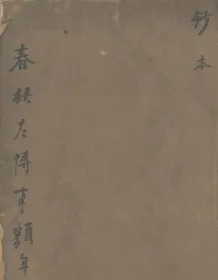 鈔本
春秋左傳事類年